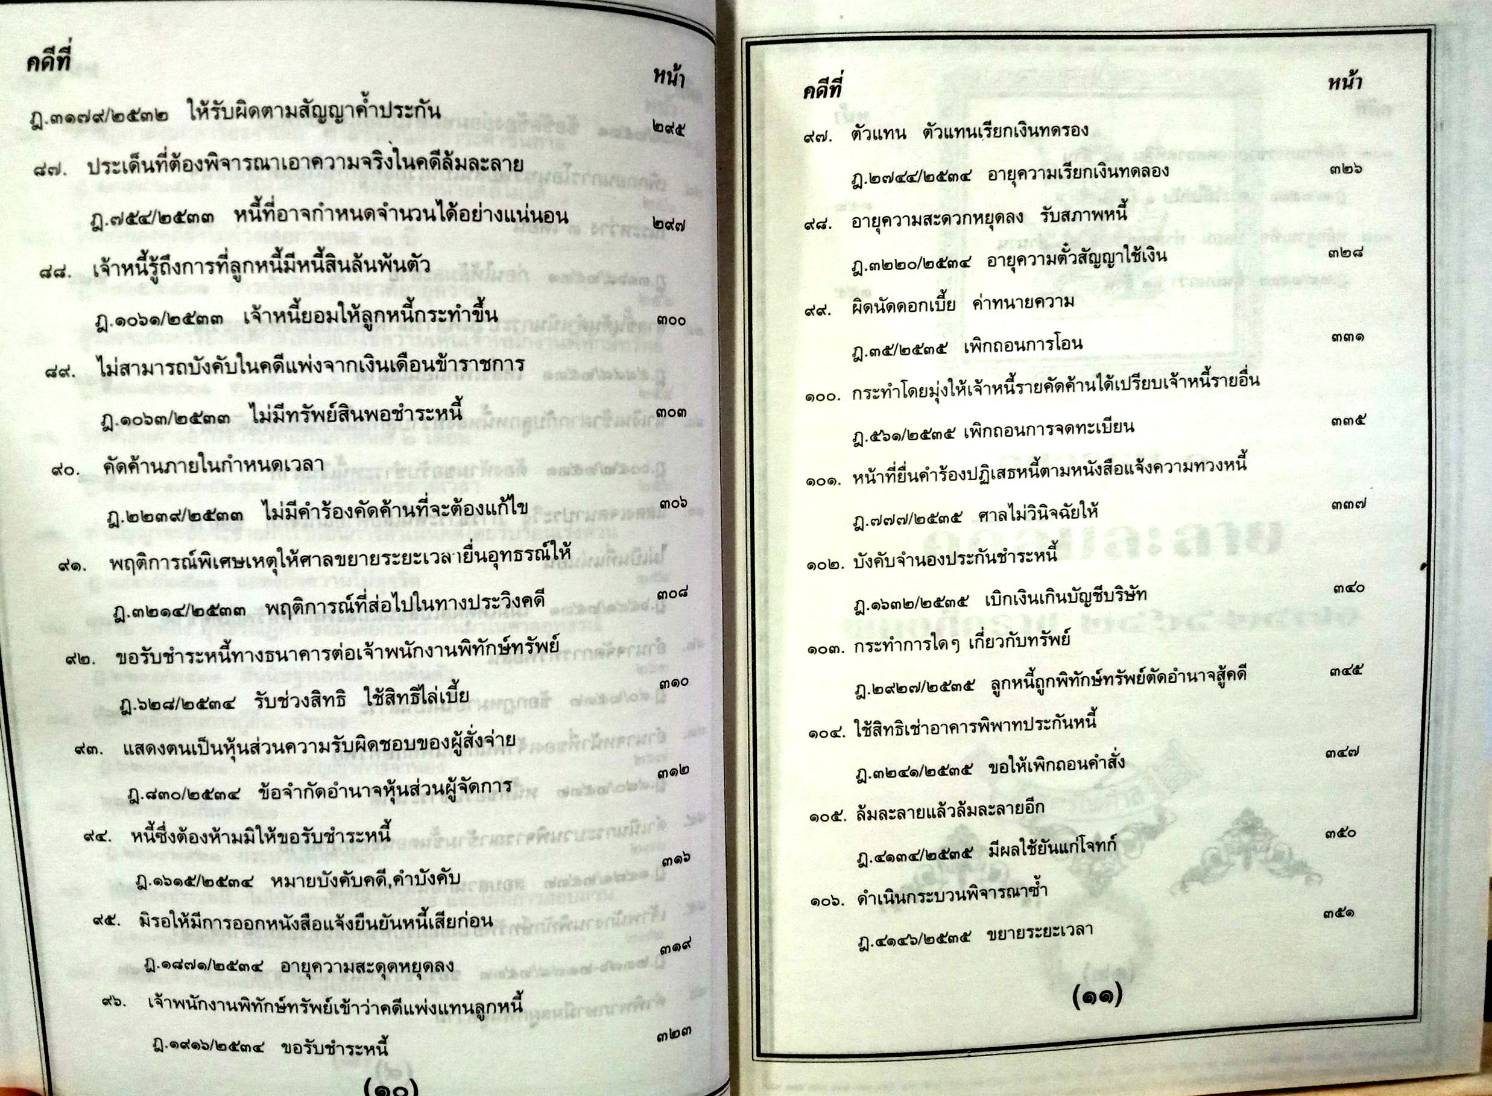 คดีที่
หน้า
ฎ.๓๑๗๙/๒๕๓๒ ให้รับผิดตามสัญญาค้ำประกัน ๒๙๕
๘๗. ประเด็นที่ต้องพิจารณาเอาความจริงในคดีล้มละลาย
ฎ.๗๕๔/๒๕๓๓ หนี้ที่อาจกำหนดจำนวนได้อย่างแน่นอน ๒๙๗
๘๘. เจ้าหนี้รู้ถึงการที่ลูกหนี้มีหนี้สินล้นพ้นตัว
ฎ.๑๐๖๑/๒๕๓๓ เจ้าหนี้ยอมให้ลูกหนี้กระทำขึ้น ๓๐๐
๘๙. ไม่สามารถบังคับในคดีแพ่งจากเงินเดือนข้าราชการ
ฎ.๑๐๖๓/๒๕๓๓ ไม่มีทรัพย์สินพอชำระหนี้ ๓๐๓
๙๐. คัดค้านภายในกำหนดเวลา
ฎ.๒๒๓๙/๒๕๓๓ ไม่มีคำร้องคัดค้านที่จะต้องแก้ไข ๓๐๖
๙๑. พฤติการณ์พิเศษเหตุให้ศาลขยายระยะเวลายื่นอุทธรณ์ให้
ฎ.๓๒๑๔/๒๕๓๓ พฤติการณ์ที่ส่อไปในทางประวิงคดี ๓๐๘
๙๒. ขอรับชำระหนี้ทางธนาคารต่อเจ้าพนักงานพิทักษ์ทรัพย์
ฎ.๖๒๘/๒๕๓๔ รับช่วงสิทธิ ใช้สิทธิไล่เบี้ย ๓๑๐
๙๓. แสดงตนเป็นหุ้นส่วนความรับผิดชอบของผู้สั่งจ่าย
ฎ.๘๓๐/๒๕๓๔ ข้อจำกัดอำนาจหุ้นส่วนผู้จัดการ ๓๑๒
๙๔. หนี้ซึ่งต้องห้ามมิให้ขอรับชำระหนี้
ฎ.๑๖๑๕/๒๕๓๔ หมายบังคับคดี,คำบังคับ ๓๑๖
๙๕. มิรอให้มีการออกหนังสือแจ้งยืนยันหนี้เสียก่อน
ฎ.๑๘๗๑/๒๕๓๔ อายุความสะดุดหยุดลง ๓๑๙
๙๖. เจ้าพนักงานพิทักษ์ทรัพย์เข้าว่าคดีแพ่งแทนลูกหนี้
ฎ.๑๙๑๖/๒๕๓๔ ขอรับชำระหนี้ ๓๒๓
(๑๐)
คดีที่
หน้า
๙๗. ตัวแทน ตัวแทนเรียกเงินทดรอง
ฎ.๒๗๔๔/๒๕๓๔ อายุความเรียกเงินทดลอง ๓๒๖
๙๘. อายุความสะดวกหยุดลง รับสภาพหนี้
ฎ.๓๒๒๐/๒๕๓๔ อายุความตั๋วสัญญาใช้เงิน ๓๒๘
๙๙. ผิดนัดดอกเบี้ย ค่าทนายความ
ฎ.๓๕/๒๕๓๕ เพิกถอนการโอน ๓๓๑
๑๐๐. กระทำโดยมุ่งให้เจ้าหนี้รายคัดค้านได้เปรียบเจ้าหนี้รายอื่น
ฎ.๕๖๑/๒๕๓๕ เพิกถอนการจดทะเบียน ๓๓๕
๑๐๑. หน้าที่ยื่นคำร้องปฏิเสธหนี้ตามหนังสือแจ้งความทวงหนี้
ฎ.๗๗๗/๒๕๓๕ ศาลไม่วินิจฉัยให้ ๓๓๗
๑๐๒. บังคับจำนองประกันชำระหนี้
ฎ.๑๖๓๒/๒๕๓๕ เบิกเงินเกินบัญชีบริษัท ๓๔๐
๑๐๓. กระทำการใดๆ เกี่ยวกับทรัพย์
ฎ.๒๙๒๗/๒๕๓๕ ลูกหนี้ถูกพิทักษ์ทรัพย์ตัดอำนาจสู้คดี ๓๔๕
๑๐๔. ใช้สิทธิเช่าอาคารพิพาทประกันหนี้
ฎ.๓๒๔๑/๒๕๓๕ ขอให้เพิกถอนคำสั่ง ๓๔๗
๑๐๕. ล้มละลายแล้วล้มละลายอีก
ฎ.๔๑๓๔/๒๕๓๕ มีผลใช้ยันแก่โจทก์ ๓๕๐
๑๐๖. ดำเนินกระบวนพิจารณาซ้ำ
ฎ.๔๑๔๖/๒๕๓๕ ขยายระยะเวลา ๓๕๑
(๑๑)